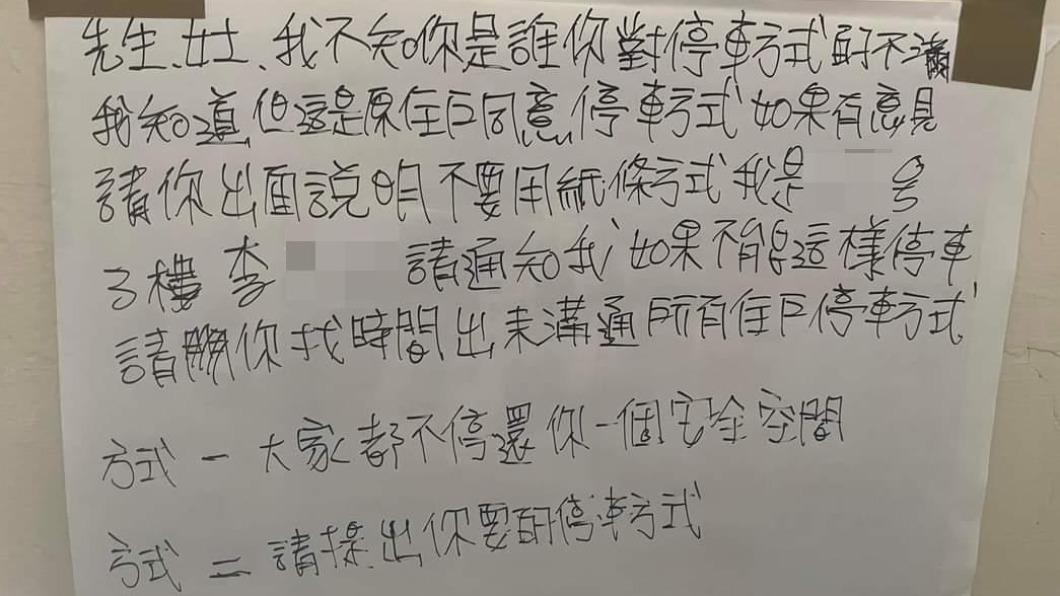 先生、女士、我不知你是誰你對停車方式的不滿
我知道,但這是原住戶同意,停車方式如果有意見
請你出面說明不要用紙條方式我是 号
3樓 李 請通知我,如果不能這樣停車
請你找時間出來溝通所有住戶停車方式
方式一大家都不停還你一個安全空間
方式二請提出你要的停車方式